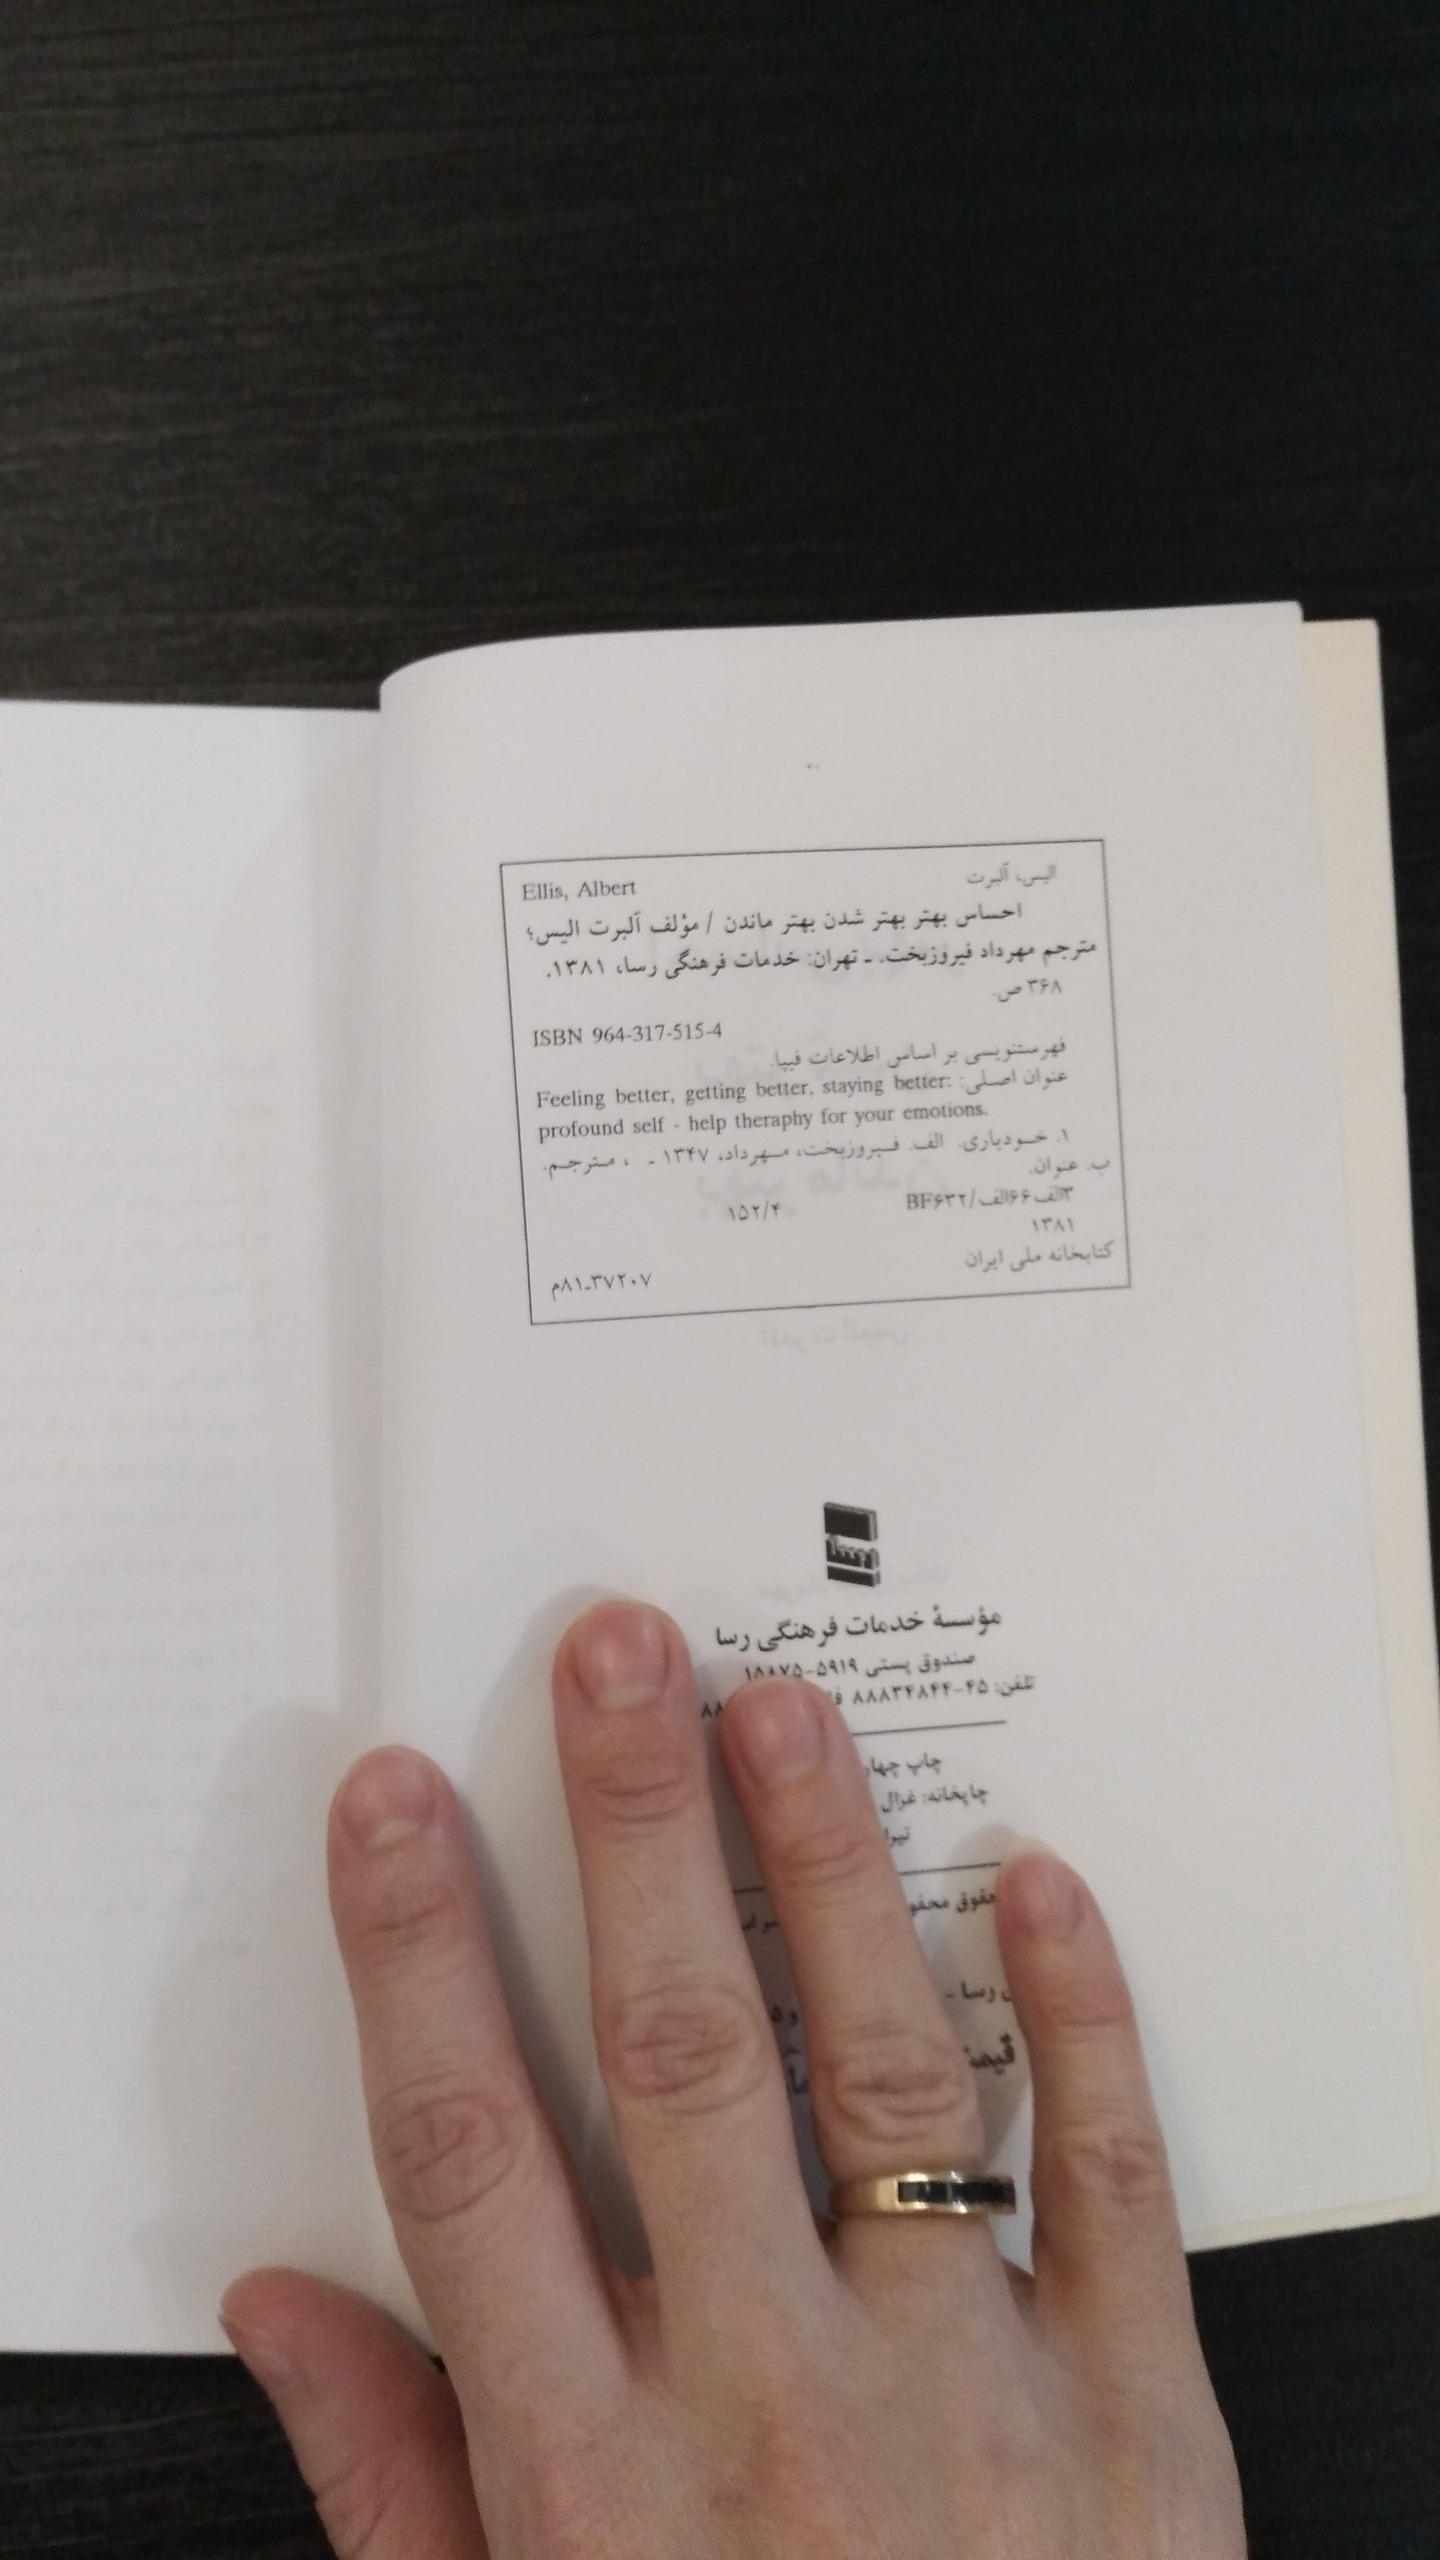 الیس، آلبرت
Ellis, Albert
احساس بهتر بهتر شدن بهتر ماندن / مؤلف آلبرت الیس؛
مترجم مهرداد فیروزبخت. ـ تهران: خدمات فرهنگی رسا، ۱۳۸۱.
۳۶۸ ص.
ISBN 964-317-515-4
فهرستنویسی بر اساس اطلاعات فیپا.
عنوان اصلی: Feeling better, getting better, staying better:
profound self - help theraphy for your emotions.
۱. خودیاری. الف. فیروزبخت، مهرداد، ۱۳۴۷ ـ ، مترجم.
ب. عنوان.
۳الف۶۶الف/BF۶۳۲ ۱۵۲/۴
۱۳۸۱
کتابخانه ملی ایران
۸۱ـ۳۷۲۰۷م
رسا
مؤسسهٔ خدمات فرهنگی رسا
صندوق پستی ۵۹۱۹-۱۵۸۷۵
تلفن: ۴۵-۸۸۸۳۴۸۴۴
چاپ
چاپخانه: غزال
رسا ـ